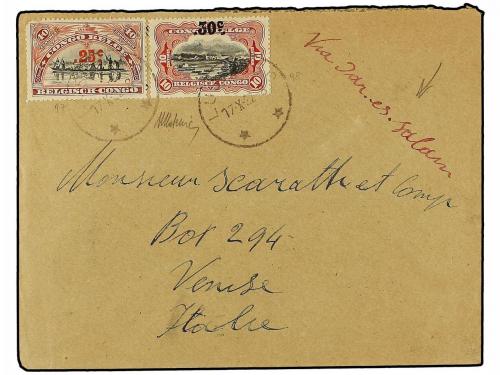 40 CONGO BELGE 40
25c
BELGISCH CONGO
30c
CONGO BELGE
10 10
BELGISCH CONGO
Via Dar. es. Salam
Monsieur Scarabth et Comp
Box 294
Venise
Italie